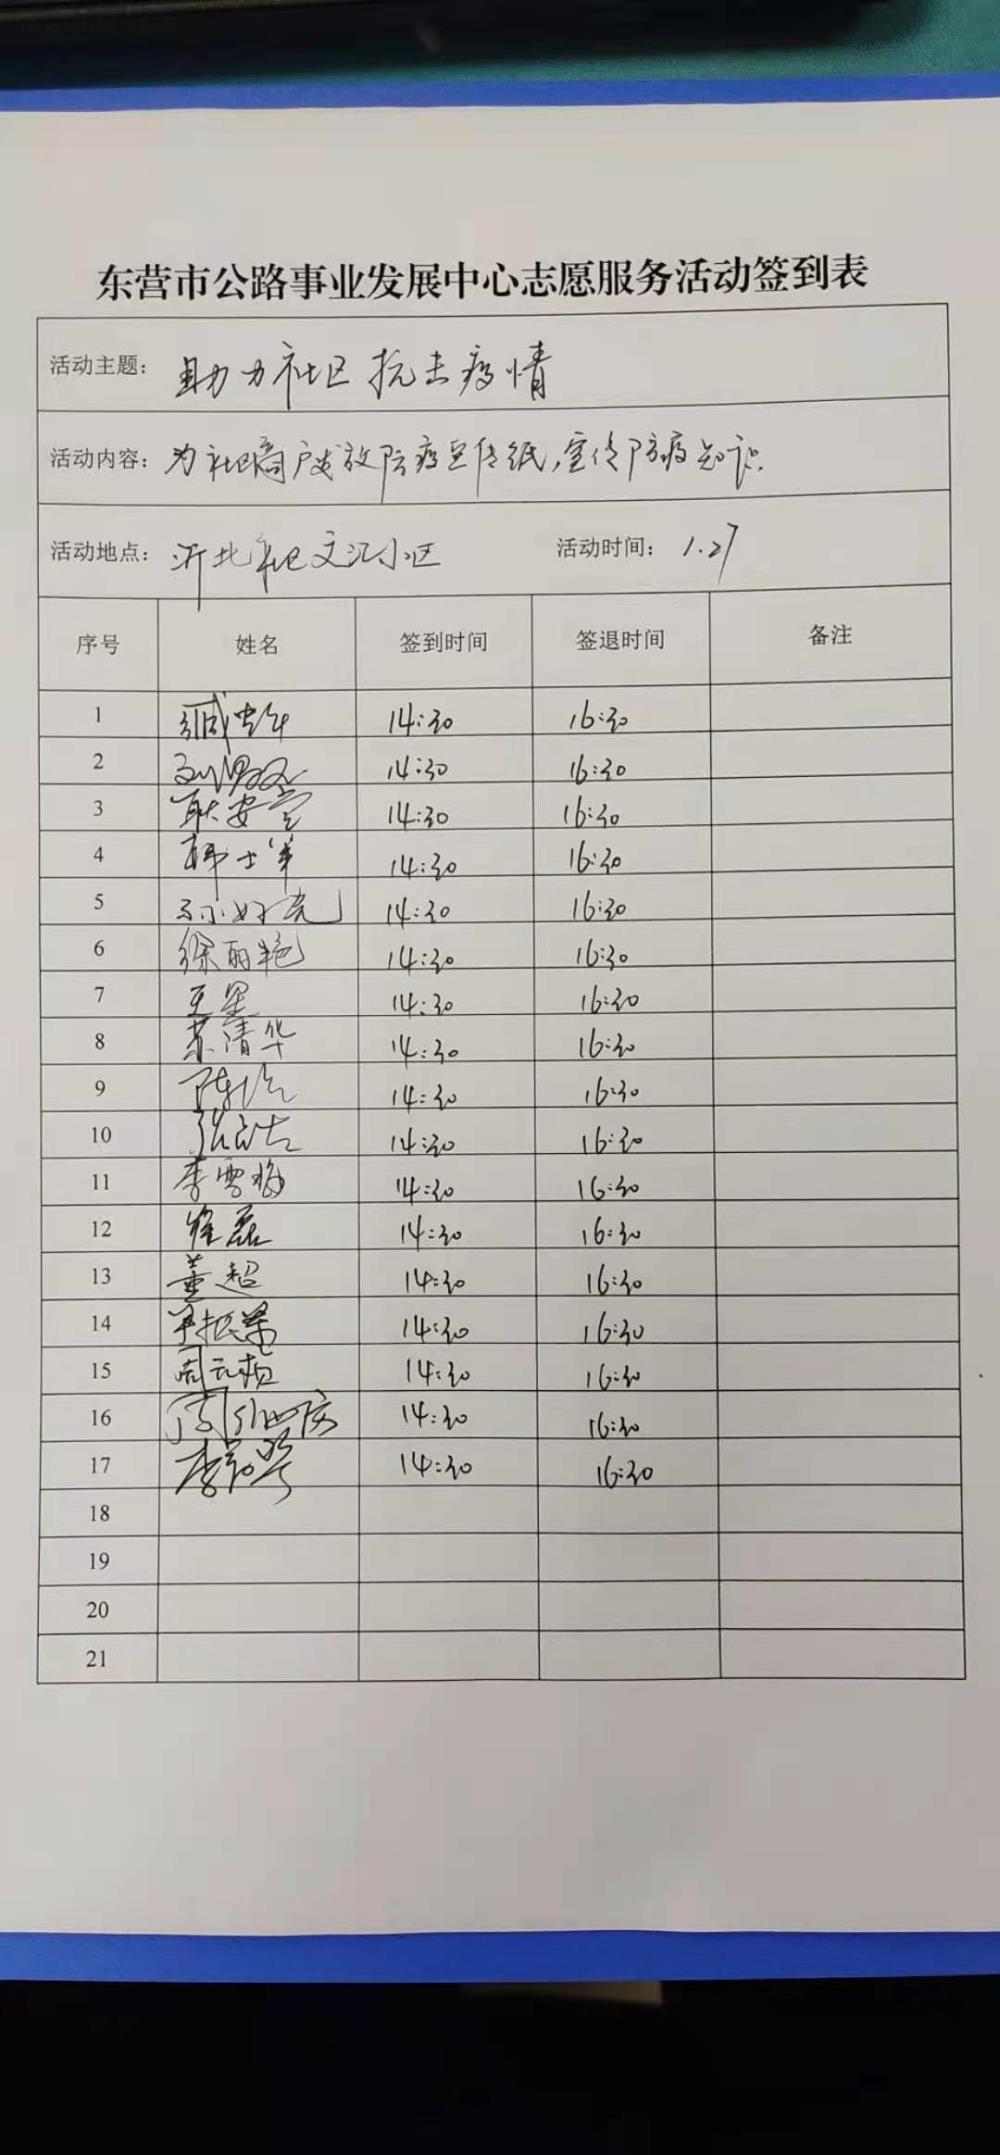 东营市公路事业发展中心志愿服务活动签到表
活动主题: 助力社区抗击疫情
活动内容: 为社区商户发放防疫宣传纸,宣传防疫知识.
活动地点: 沂北社区文汇小区 活动时间: 1.27
序号 姓名 签到时间 签退时间 备注
1 14:30 16:30
2 14:30 16:30
3 耿安营 14:30 16:30
4 韩士军 14:30 16:30
5 孙好亮 14:30 16:30
6 徐丽艳 14:30 16:30
7 王星 14:30 16:30
8 苏清华 14:30 16:30
9 14:30 16:30
10 14:30 16:30
11 李雪梅 14:30 16:30
12 崔磊 14:30 16:30
13 董超 14:30 16:30
14 14:30 16:30
15 14:30 16:30
16 14:30 16:30
17 14:30 16:30
18
19
20
21